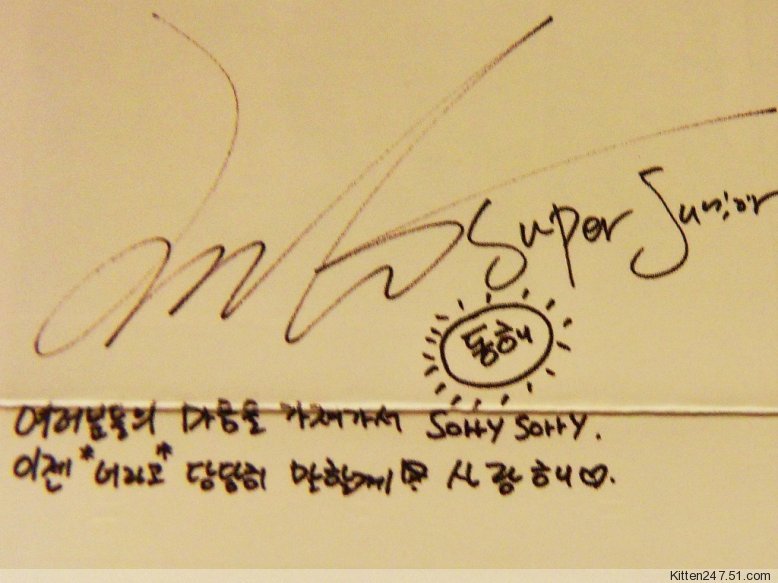 Super Junior
동해
여러분들의 마음을 가져가서 Sorry Sorry.
이젠 *너라고* 당당히 말할게 사랑해♡.
Kitten247.51.com